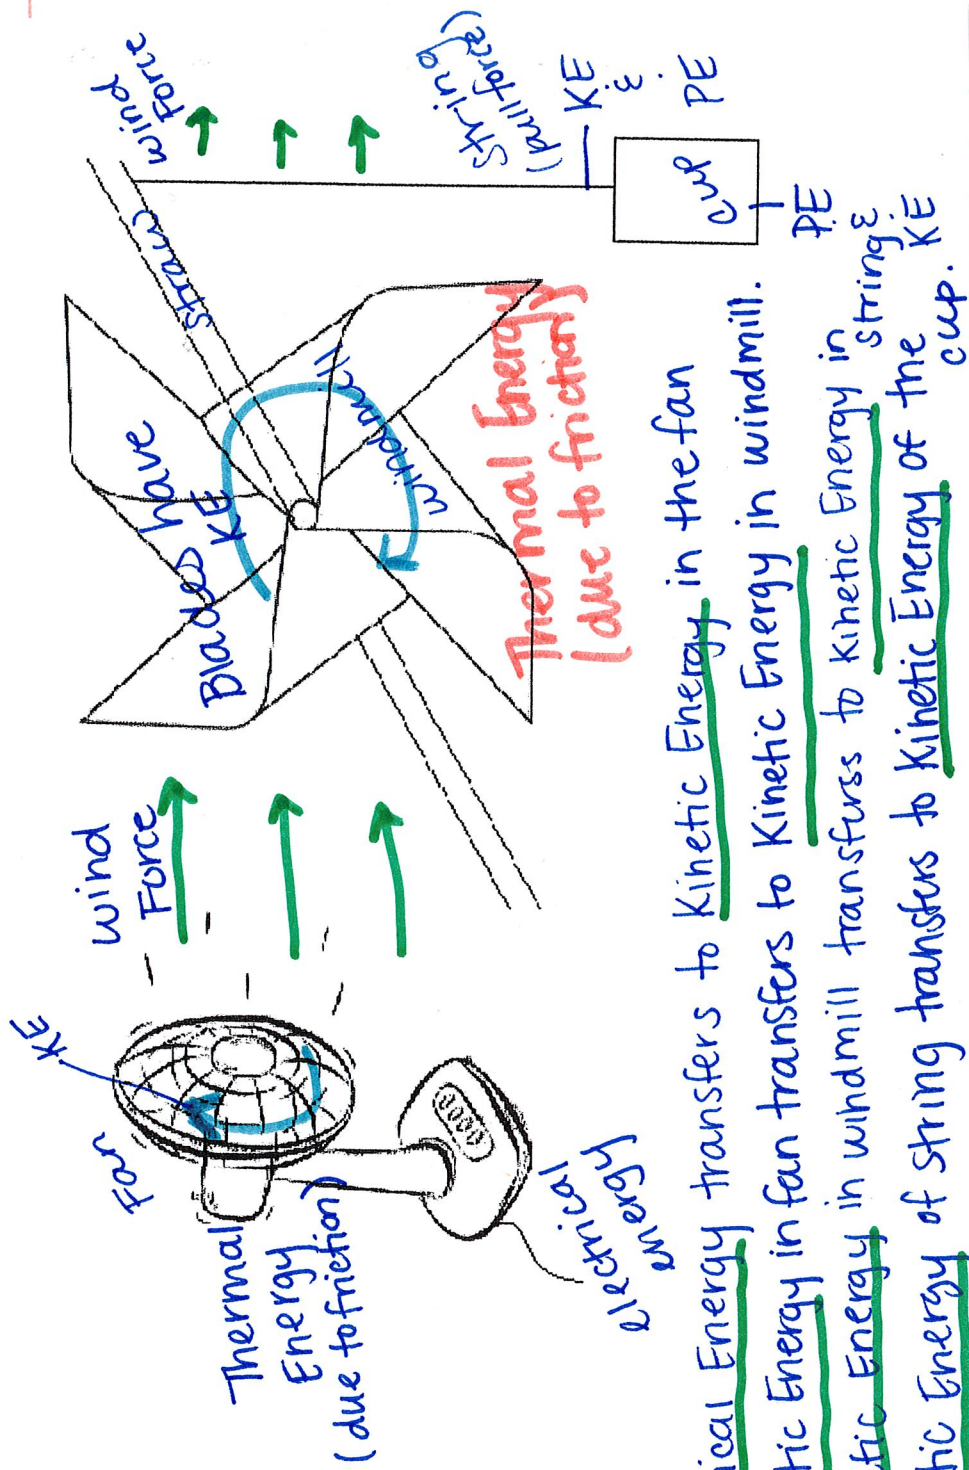 Fan
KE
Thermal
Energy
(due to friction)
electrical
energy
Wind
Force
Blades have
KE
windmill
straw
Thermal Energy
(due to friction)
wind
Force
string
(pull force)
KE
&
PE
cup
PE
&
KE
ical Energy transfers to Kinetic Energy in the fan
tic Energy in fan transfers to Kinetic Energy in windmill.
tic Energy in windmill transfurss to kinetic Energy in
string
tic Energy of string transfers to Kinetic Energy of the
cup.